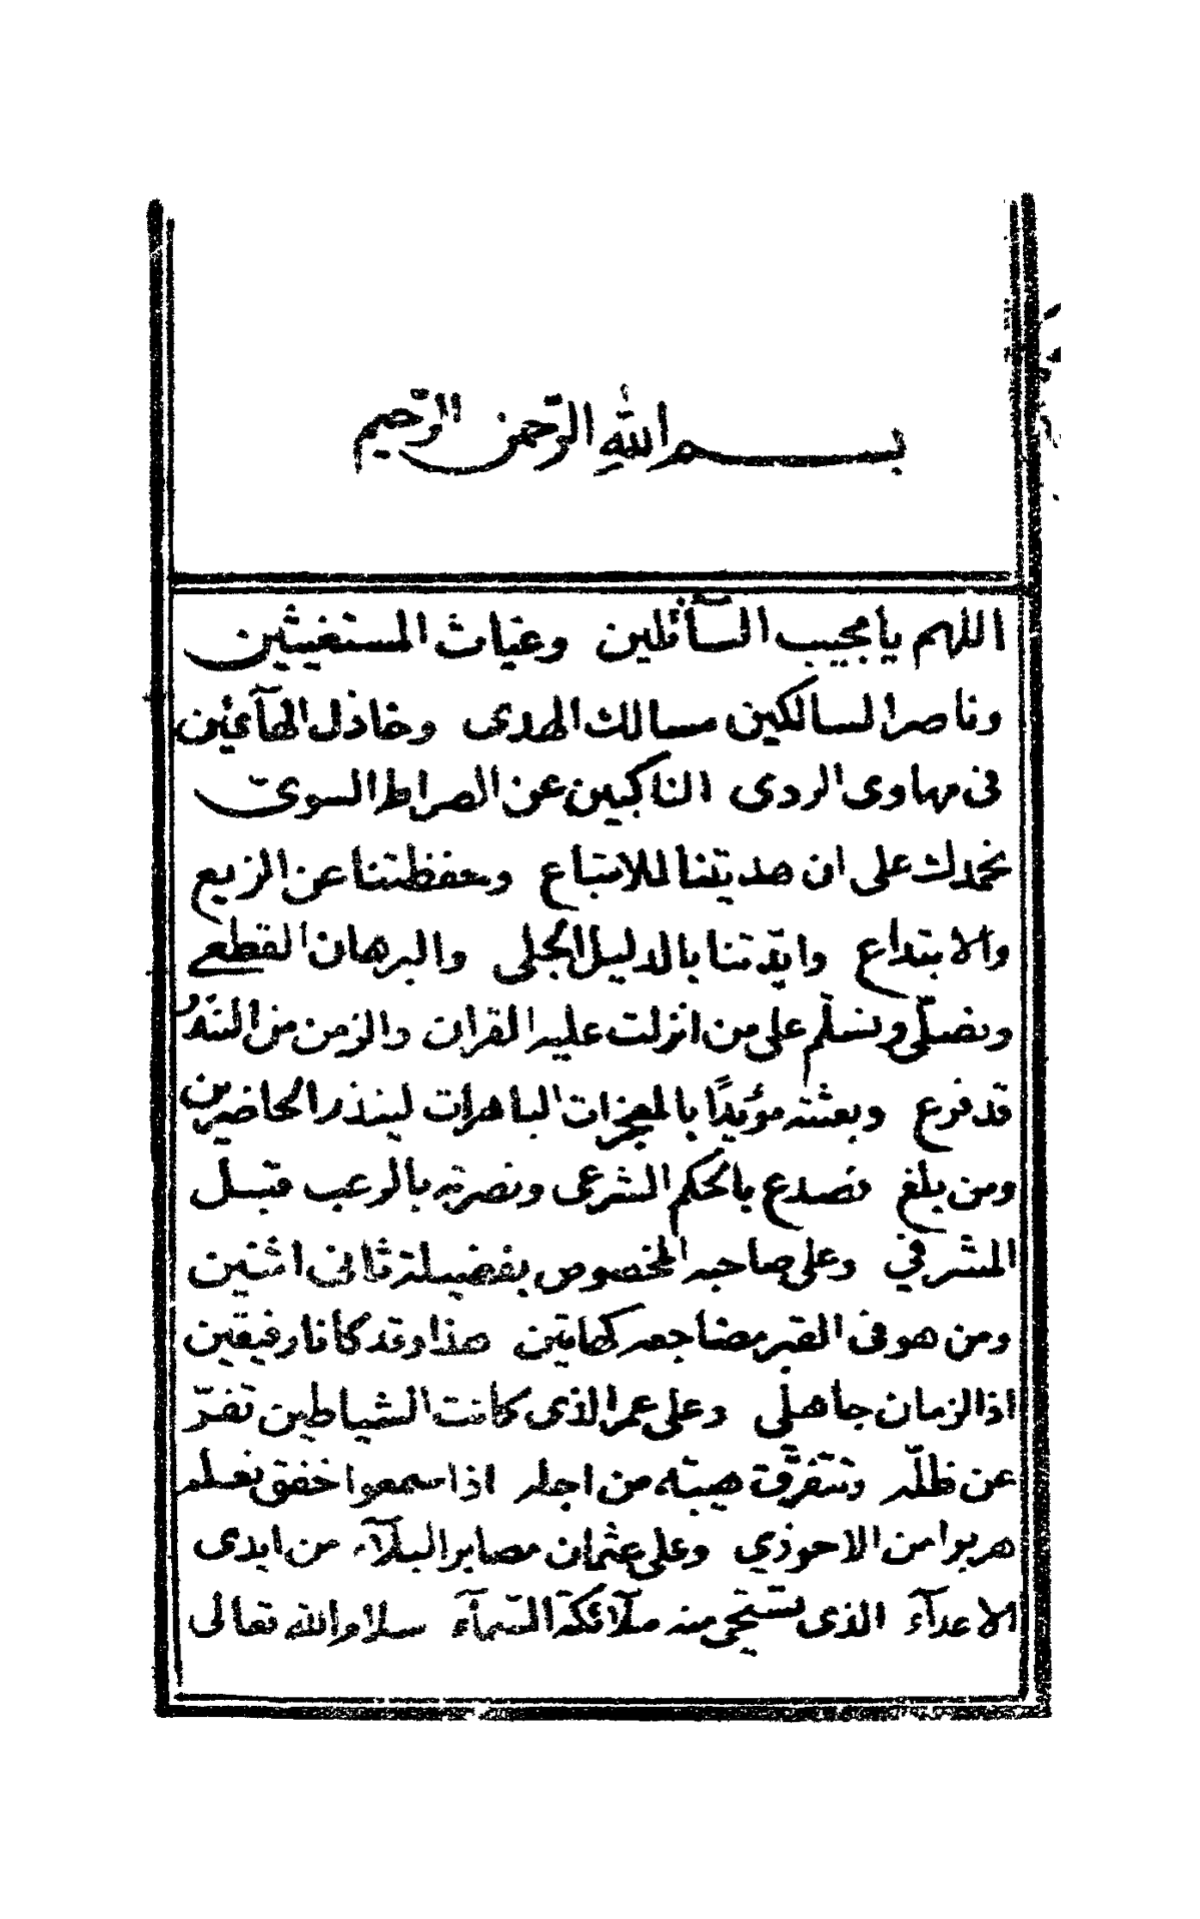 بسم اللهِ الرّحمن الرّحيم
اللهم يا مجيب السآئلين وغياث المستغيثين
وناصر السالكين مسالك الهدى وخاذل الهآئمين
فى مهاوى الردى الناكبين عن الصراط السوىّ
نحمدك على ان هديتنا للاتباع وحفظتنا عن الزيغ
والابتداع وايّدتنا بالدليل الجلى والبرهان القطعے
ونصلّى ونسلّم على من انزلت عليه القران والزمن من
قد فرغ وبعثته مؤيدًا بالمعجزات الباهرات لينذر الحاضرين
ومن بلغ فصدع بالحكم الشرعى ونصرته بالرعب قبل
المشرفي وعلى صاحبه المخصوص بفضيلة ثانى اثنين
ومن هو فى القبر مضاجعه كهاتين هذا وقد كانا رفيقين
اذ الزمان جاهلّى وعلى عمر الذى كانت الشياطين تفرّ
عن ظلّه وتتفرّق هيبته من اجله اذا سمعوا خفق نعله
هربوا من الاحوذي وعلى عثمان مصابر البلآء من ايدى
الاعدآء الذى تستحى منه ملآئكة السّمآء سلام الله تعالى